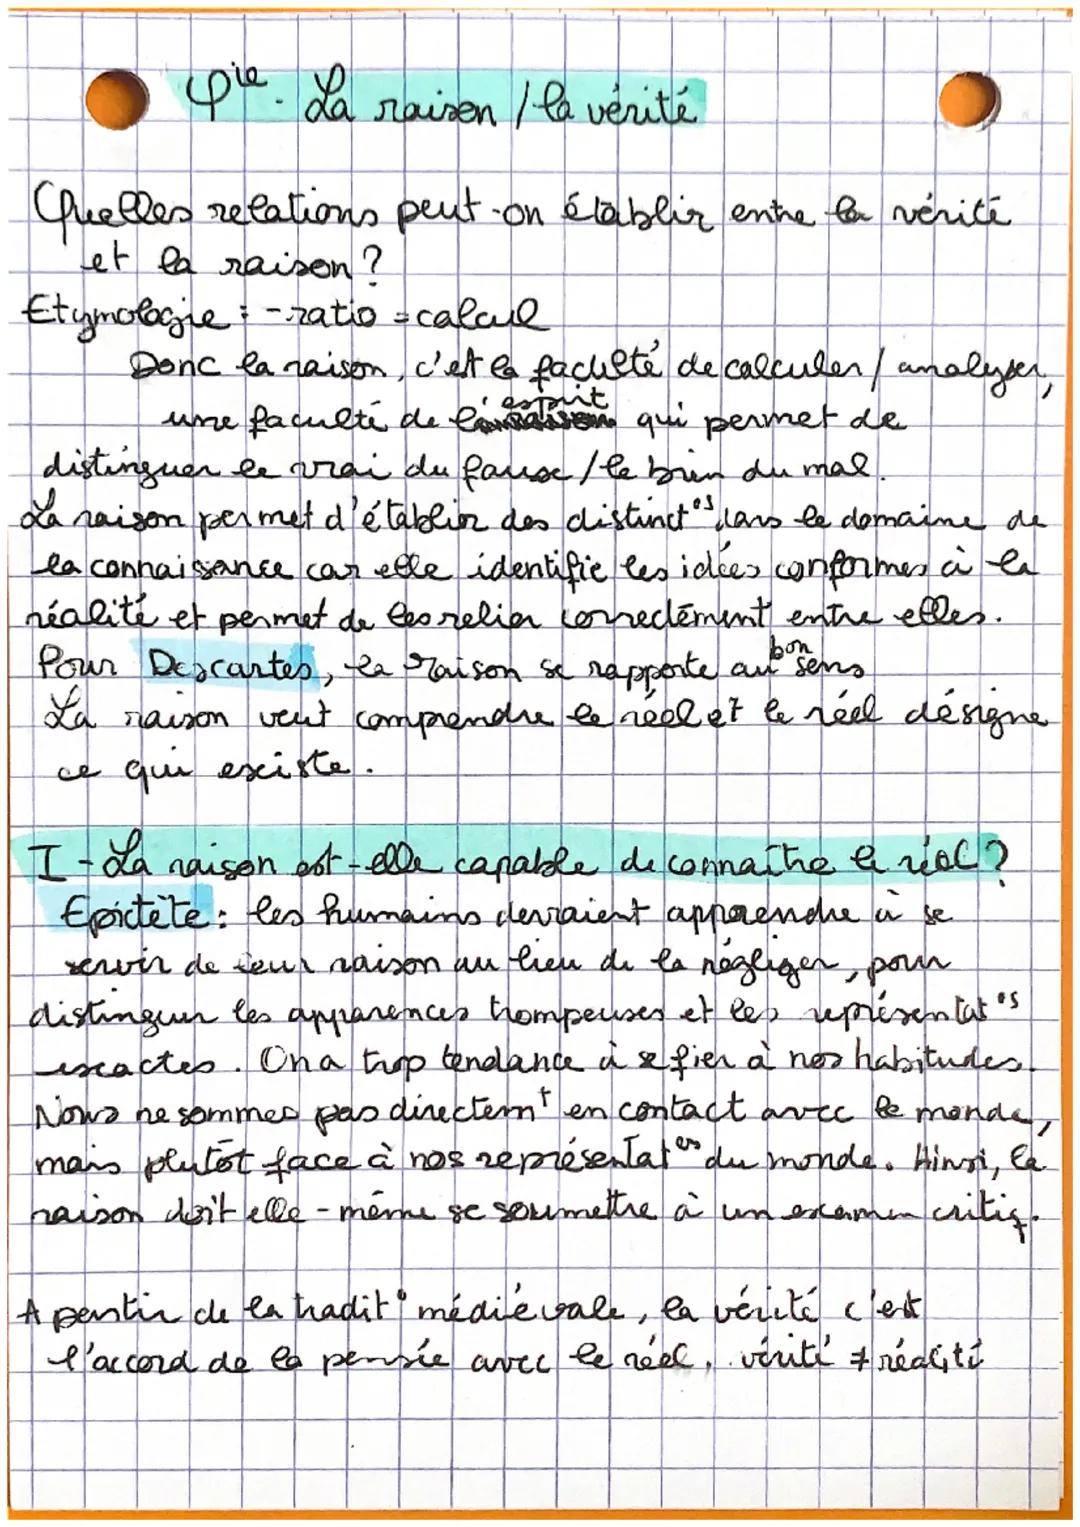 φie. La raison / la vérité
Quelles relations peut-on établir entre la vérité
et la raison ?
Etymologie : - ratio = calcul
Donc la raison, c'est la faculté de calculer / analyser,
une faculté de l'esprit qui permet de
distinguer le vrai du faux / le bien du mal.
La raison permet d'établir des distinct°s dans le domaine de
la connaissance car elle identifie les idées conformes à la
réalité et permet de les relier correctement entre elles.
Pour Descartes, la raison se rapporte au bon sens
La raison veut comprendre le réel et le réel désigne
ce qui existe.
I - La raison est-elle capable de connaître le réel ?
Epictète : les humains devraient apprendre à se
servir de leur raison au lieu de la négliger, pour
distinguer les apparences trompeuses et les représentat°s
exactes. On a trop tendance à se fier à nos habitudes.
Nous ne sommes pas directemt en contact avec le monde,
mais plutôt face à nos représentat°s du monde. Ainsi, la
raison doit elle-même se soumettre à un examen critiq.
A partir de la tradit° médiévale, la vérité c'est
l'accord de la pensée avec le réel. vérité ≠ réalité